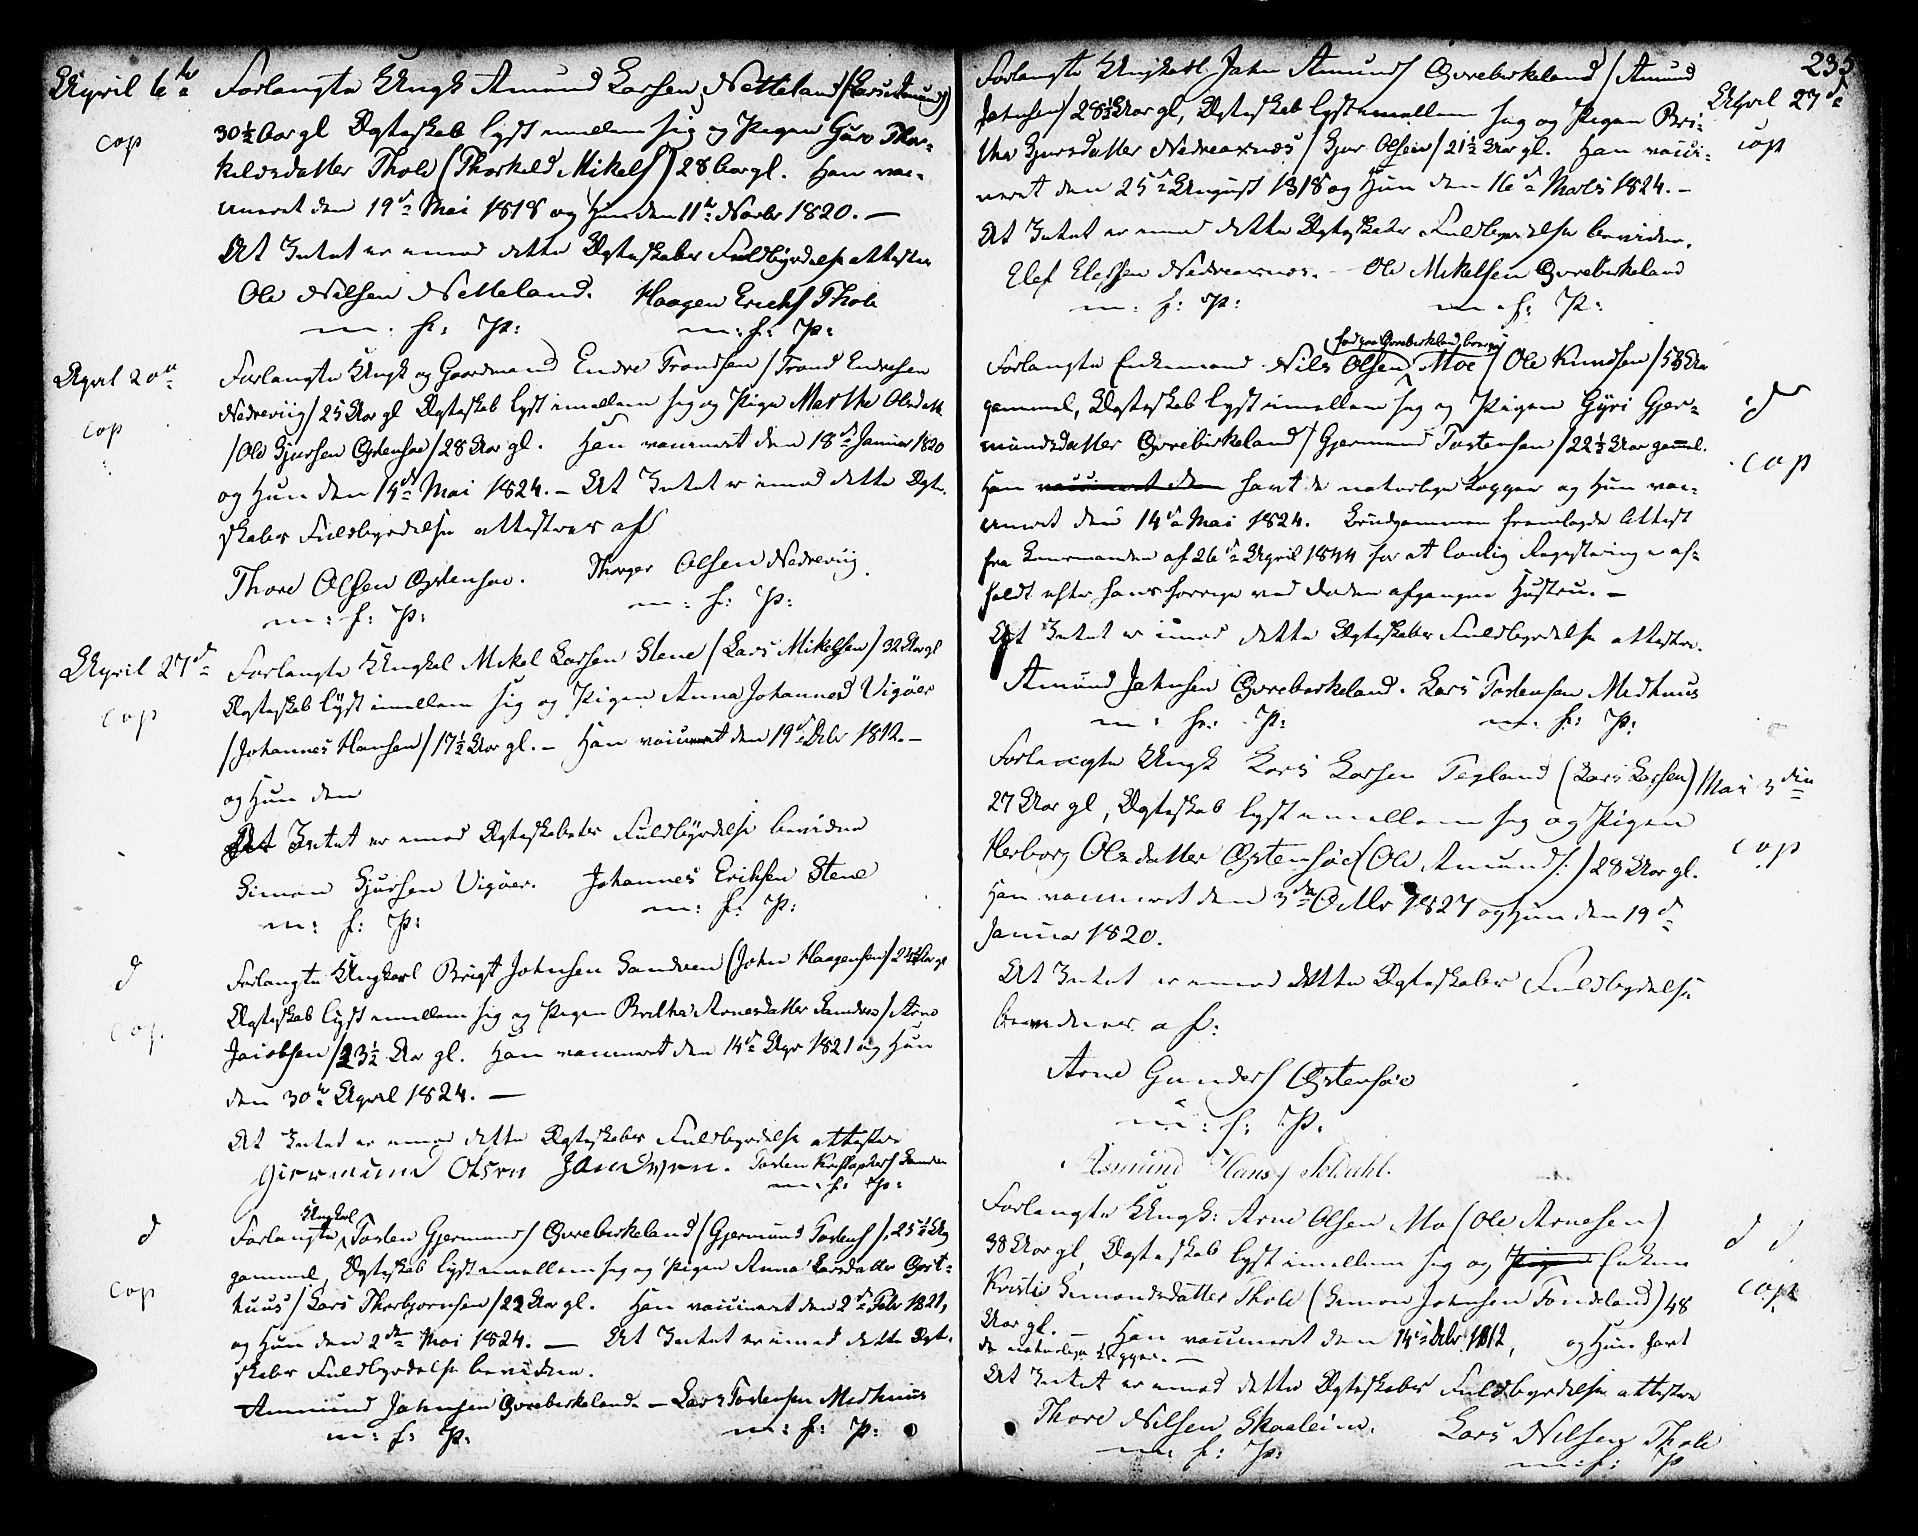 April 6te
cop
Forlangte Ungk Amund Larsen Netteland (Lars Amunds)
30½ Aar gl Ægteskab lyst imellem sig og Pigen Guro Thor-
kildsdatter Thole (Thorkild Mikels) 28 Aar gl. Han vac-
cineret den 19de Mai 1818 og Hun den 11te Novbr 1820. —
At Intet er imod dette Ægteskabs Fuldbyrdelse attestere
Ole Nilsen Netteland. Haagen Erichs Thole
m: f: P: m: f: P:
April 20de
cop
Forlangte Ungk og Gaardmand Endre Trondsen / Trond Endresen
Nedreviig / 25 Aar gl Ægteskab lyst imellem sig og Pige Martha Olsdatt
/ Ole Gjursen Østensøe / 28 Aar gl. Han vaccineret den 18de Januar 1820
og Hun den 14de Mai 1824. — At Intet er imod dette Ægte-
skabs Fuldbyrdelse attesteres af
Thore Olsen Østensøe. Thorger Olsen Nedreviig.
m: f: P: m: f: P:
April 27de
cop
Forlangte Ungkal Mikel Larsen Stene / Lars Mikelsen / 32 Aar gl
Ægteskab lyst imellem sig og Pigen Anna Johannesd Vigøer
/ Johannes Hansen / 17½ Aar gl. — Han vaccineret den 19de Debr 1812. —
og Hun den
At Intet er imod Ægteskabets Fuldbyrdelse bevidne
Simon Gjursen Vigøer. Johannes Eriksen Stene
m: f: P: m: f: P:
d
cop.
Forlangte Ungkarl Brigt Johnsen Sandven (John Haagensen / 24½ Aar gl
Ægteskab lyst imellem sig og Pigen Britha Arnesdatter Sandven / Arne
Jacobsen / 23½ Aar gl. Han vaccineret den 14de Apr 1821 og Hun
den 30te April 1824. —
At Intet er imod dette Ægteskabs Fuldbyrdelse attestere
Giermund Olsen Sandven. Torsten Kristophers Sandven
m: f: P:
d
cop
Ungkarl
Forlangte Torsten Gjermunds Øvrebirkeland / Gjermund Torstens /, 25½ Aar
gammel, Ægteskab lyst imellem sig og Pigen Anna Larsdatter Øyst-
huus / Lars Thorbjørnsen / 22 Aar gl. Han vaccineret den 2de Febr 1821,
og Hun den 2den Mai 1824. — At Intet er imod dette Ægte-
skabs Fuldbyrdelse bevidne.
Ammund Johnsen Øvrebirkeland. — Lars Torstensen Medhuus
m: f: P: m: f: P:
235
April 27de
cop
Forlangte Ungkarl John Amunds Øvrebirkeland / Amund
Johnsen / 28½ Aar gl, Ægteskab lyst imellem sig og Pigen Bri-
tha Gjursdatter Nedreaxnæs / Gjur Olsen / 21½ Aar gl. Han vacci-
neret den 25de August 1818 og Hun den 16de Marts 1824. —
At Intet er imod dette Ægteskabs Fuldbyrdelse bevidne.
Elef Elefsen Nedreaxnæs. Ole Mikelsen Øvrebirkeland
m: f: P: m: f: P:
d
cop
Forlangte Enkemand Nils Olsen Moe / Ole Knudsen / 58 Aar
gammel, Ægteskab lyst imellem sig og Pigen Gyri Gjer-
mundsdatter Øvrebirkeland / Gjermund Torstensen / 22½ Aar gammel.
Han vaccineret den havt de naturlige Kopper og Hun vac-
cineret den 14de Mai 1824. Brudgommen fremlagde Attest
fra Lensmanden af 26de April 1844 for at lovlig Registering er af-
holdt efter hans forrige ved Døden afgangne Hustru. —
At Intet er imod dette Ægteskabs Fuldbyrdelse attestere.
Amund Johnsen Øvrebirkeland. Lars Torstensen Medhuus
m: f: P: m: f: P:
Mai 3die
cop
Forlangte Ungk Lars Larsen Tegland (Lars Larsen)
27 Aar gl, Ægteskab lyst imellem sig og Pigen
Herborg Olsdatter Østensøe (Ole Amunds:) 28 Aar gl.
Han vaccineret den 3die Octbr 1827 og Hun den 19de
Januar 1820.
At Intet er imod dette Ægteskabs Fuldbyrdelse
bevidnes af:
Arne Gunders Østensøe
m: f: P:
Asmund Hansj Soldahl.
d d
cop
Forlangte Ungk: Arne Olsen Mo (Ole Arnesen)
38 Aar gl, Ægteskab lyst imellem sig og Pigen Enken
Kristi Simonsdatter Thole (Simon Johnsen Tondeland) 48
Aar gl. — Han vaccineret den 14de Debr 1812, og Hun havt
de naturlige Kopper. —
At Intet er imod dette Ægteskabs Fuldbyrdelse attestere
Thore Nilsen Skaaleim. Lars Nilsen Thole
m: f: P: m: f: P